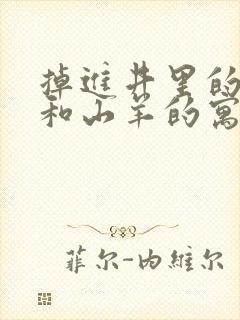 掉進井里的
和山羊的寓
菲尔-内維尔